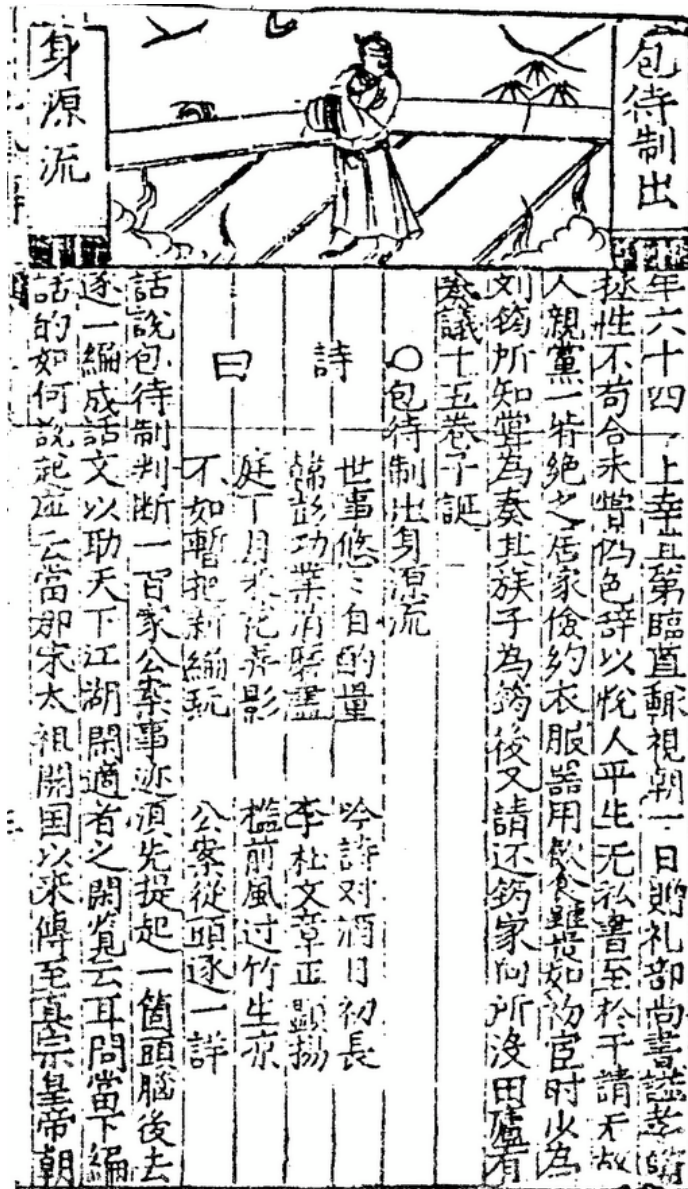 包待制出
身源流
年六十四 上幸其第臨奠輟視朝一日贈礼部尚書諡孝肅
拯性不苟合未嘗偽色辞以悅人平生无私書至於干請无故
人親黨一皆絕之居家儉約衣服器用飲食雖如初宦时少為
刘筠所知嘗為奏其族子為筠後又請还筠家向所沒田廬有
奏議十五卷子誕
〇包待制出身源流
詩曰
世事悠〻自酌量 吟詩对酒日初長
韓彭功業消磨盡 李杜文章正顯揚
庭下月來花弄影 檻前風过竹生凉
不如暫把新編玩 公案從頭逐一詳
話說包待制判断一百家公案事迹須先提起一箇頭腦後去
逐一編成話文以助天下江湖閑適者之閑覽云耳問當下編
話的如何說起應云當那宋太祖開国以來傳至真宗皇帝朝